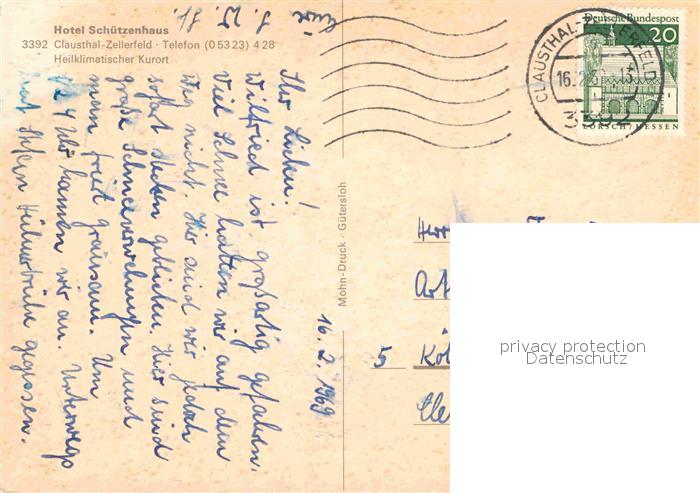 Hotel Schützenhaus
3392 Clausthal-Zellerfeld · Telefon (0 53 23) 4 28
Heilklimatischer Kurort
16. 2. 1969
Ihr Lieben!
Wilfried ist großartig gefahren.
Viel Schnee hatten wir auf dem
Weg nicht. Hier sind wir jedoch
sofort stecken geblieben. Hier sind
große Schneeverwehungen und
man friert grausam. Um
1/2 4 Uhr kamen wir an. Unterwegs
hat Hühnerbrühe gegossen.
Mohn-Druck · Gütersloh
Deutsche Bundespost
20
LORSCH/HESSEN
CLAUSTHAL-ZELLERFELD
16.2.
3392
Herr
5 Köl
privacy protection
Datenschutz